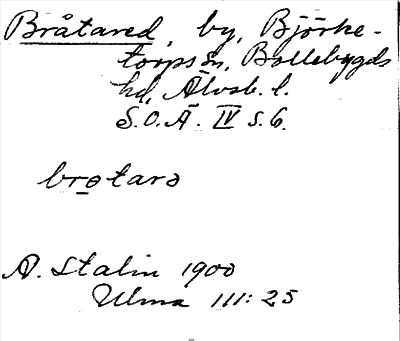 Bråtared, by, Björke-
torps sn, Bollebygds
hd, Älvsb. l.
S.O.Ä. IV s. 6.
brɵtarə
A. Stalin 1900
Ulma 111: 25